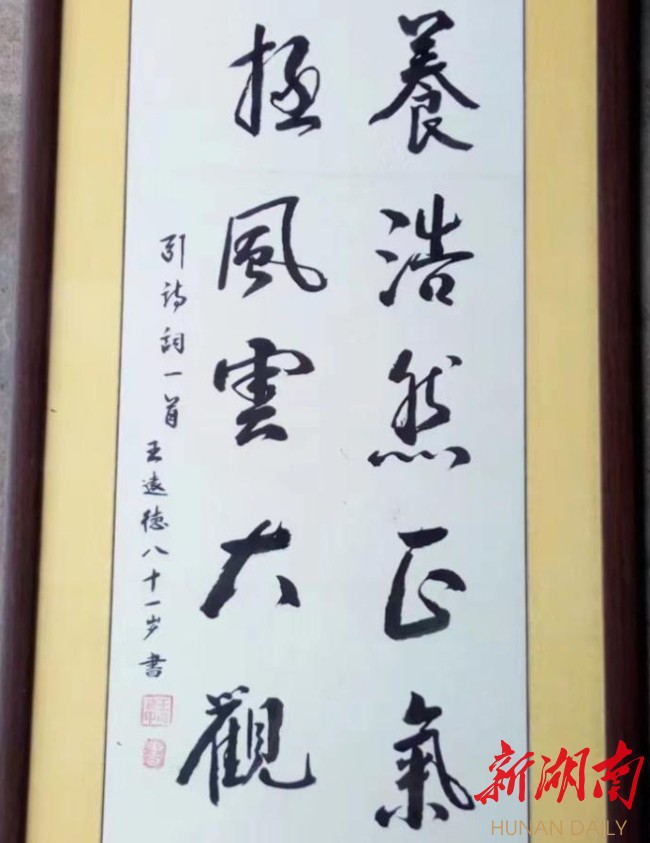 養浩然正氣
極風雲大觀
引詩詞一首 王遠德八十一岁書
新湖南
HUNAN DAILY